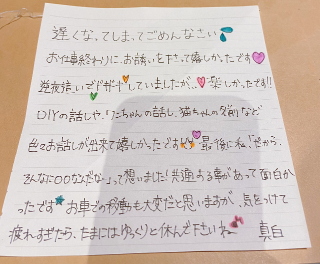 遅くなってしまってごめんなさい
お仕事終わりに、お誘いを下さって嬉しかったです
していましたが、楽しかったです!!
DIYの話しや、「ニャちゃんの話し、猫ちゃんの名前」など
色々お話しが出来て嬉しかったです 最後にね「だから、
そんなに〇〇なんだな〜」って思いました!共通する事があって面白か
ったです お車での移動も大変だと思いますが、気をつけて
疲れすぎたら、たまにはゆっくりと休んで下さいね 真白